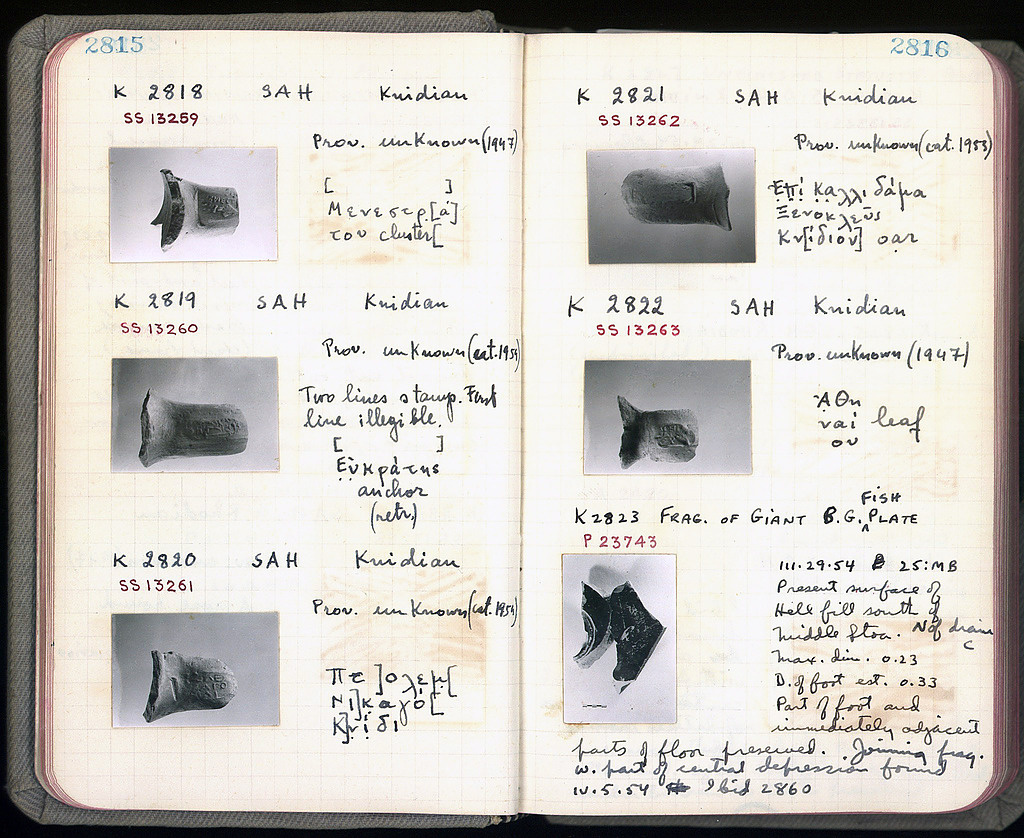 2815
K 2818 SAH Knidian
SS 13259
Prov. unknown (1947)
[ ]
Μενεστρ[ά]
του cluster[
K 2819 SAH Knidian
SS 13260
Prov. unknown (cat. 1954)
Two lines stamp. First
line illegible.
[ ]
Εὐκράτης
anchor
(retr.)
K 2820 SAH Knidian
SS 13261
Prov. unknown (cat. 1954)
Πτ]ολεμ[
Νι]καγό[
Κ]νίδι
2816
K 2821 SAH Knidian
SS 13262
Prov. unknown (cat. 1953)
Ἐπὶ Καλλιδάμα
Ξενοκλεῦς
Κν[ίδιον] oar
K 2822 SAH Knidian
SS 13263
Prov. unknown (1947)
Ἀθη
ναί leaf
ου
K 2823 FRAG. OF GIANT B.G. FISH PLATE
P 23743
III.29.54 25:MB
Present surface of
Hell fill south of
Middle Stoa. N of drain
C
Max. dim. 0.23
D. of foot est. 0.33
Part of foot and
immediately adjacent
parts of floor preserved. Joining frag.
w. part of central depression found
IV.5.54 Ibid 2860